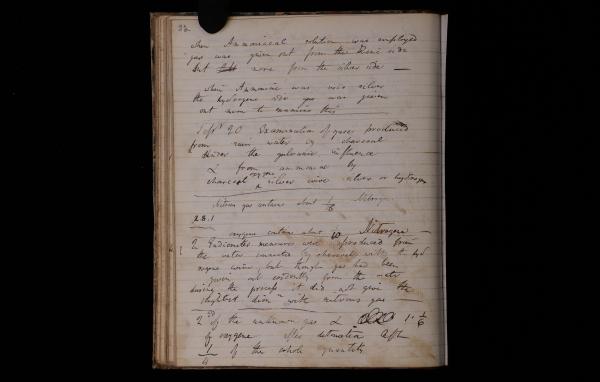 22
when Ammoniacal solution was employed
gas was given out from the Zinc side
but none from the silver side —
when Ammoniac was used silver
the hydrogene side gas was given
out now to examine this
Septr 20 Examination of gases produced
from rain water by charcoal
under the galvanic influence
& from ammoniac by
charcoal oxygene & silver wire silver or hydrogen
Nitrous gas contains about 1/6 Nitrogen
oxygene contains about 1/10 Nitrogene —
2 Eudiometer measures were produced from
the water connected by charcoal with the hyd
rogene wire but though gas had been
given out evidently from the water
during the process it did not give the
slightest dimn with nitrous gas —
2nd of the unknown gas & 1. 1/6
of oxygene after detonation left
1/4 of the whole quantity